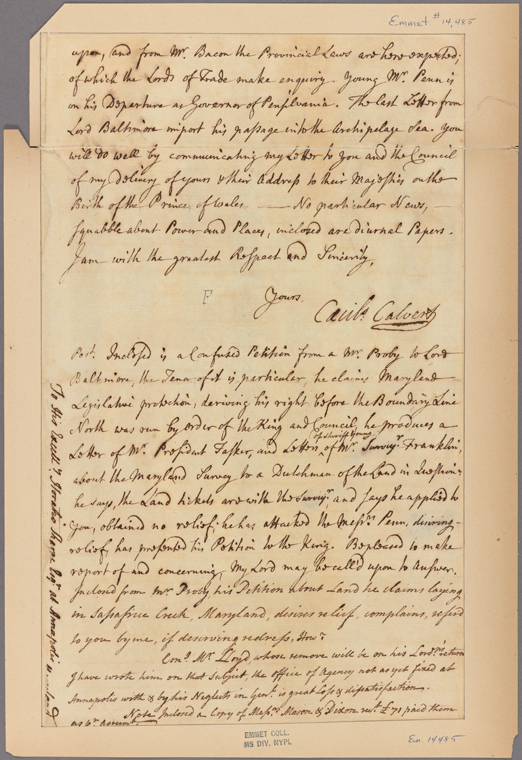 Emmet # 14,485
upon, and from Mr. Bacon the Provincial Laws are here expected;
of which the Lords of Trade make enquiry. Young Mr. Penn is
on his Departure as Governor of Pensilvania. The last Letter from
Lord Baltimore import his passage into the Archipelago Sea. You
will do well by communicating my Letter to you and the Council
of my Delivery of yours & their Address to their Majesties on the
Birth of the Prince of Wales. No particular News,
squabble about Power and Places, inclosed are diurnal Papers.
I am with the greatest Respect and Sincerity,
Yours.
F
Cecils. Calvert
Post. Inclosed is a Confused Petition from a Mr. Proby to Lord
Baltimore, the Tena of it is particular, he claims Maryland
Legislative protection, deriving his right before the Boundary Line
North was run by order of the King and Council, he produces a
Letter of Mr. President Tasker, and Letters, of Mr. Survyr. Franklin,
of Sheriff Young
about the Maryland Survey to a Dutchman of the Land in Question:
he says, the Land tickets are with the Survyr and says he applied to
you, obtained no relief; he has attacked the Messrs Penn, desiring
relief, has presented his Petition to the King. Be pleased to make
report of and concerning, My Lord may be called upon to Answer.
Inclosed from Mr Proby his Petition about Land he claims laying
in Sassafrus Creek, Maryland, desires relief, complains, referd
to you by me, if deserving redress,
Conq. Mr. Lloyd, whose remove will be on his Lordps. return
I have wrote him on that Subject, the Office of Agency not as yet fixed at
Annapolis with & by his Neglects in Genl. is great Loss & dissatisfaction.
Note Inclosed a Copy of Messrs. Mason & Dixon rect. £71 paid them
as pr. Account
To His Excelly. Horatio Sharpe Esqr. at Annapolis Maryland
EMMET COLL.
MS DIV. NYPL
Em 14485